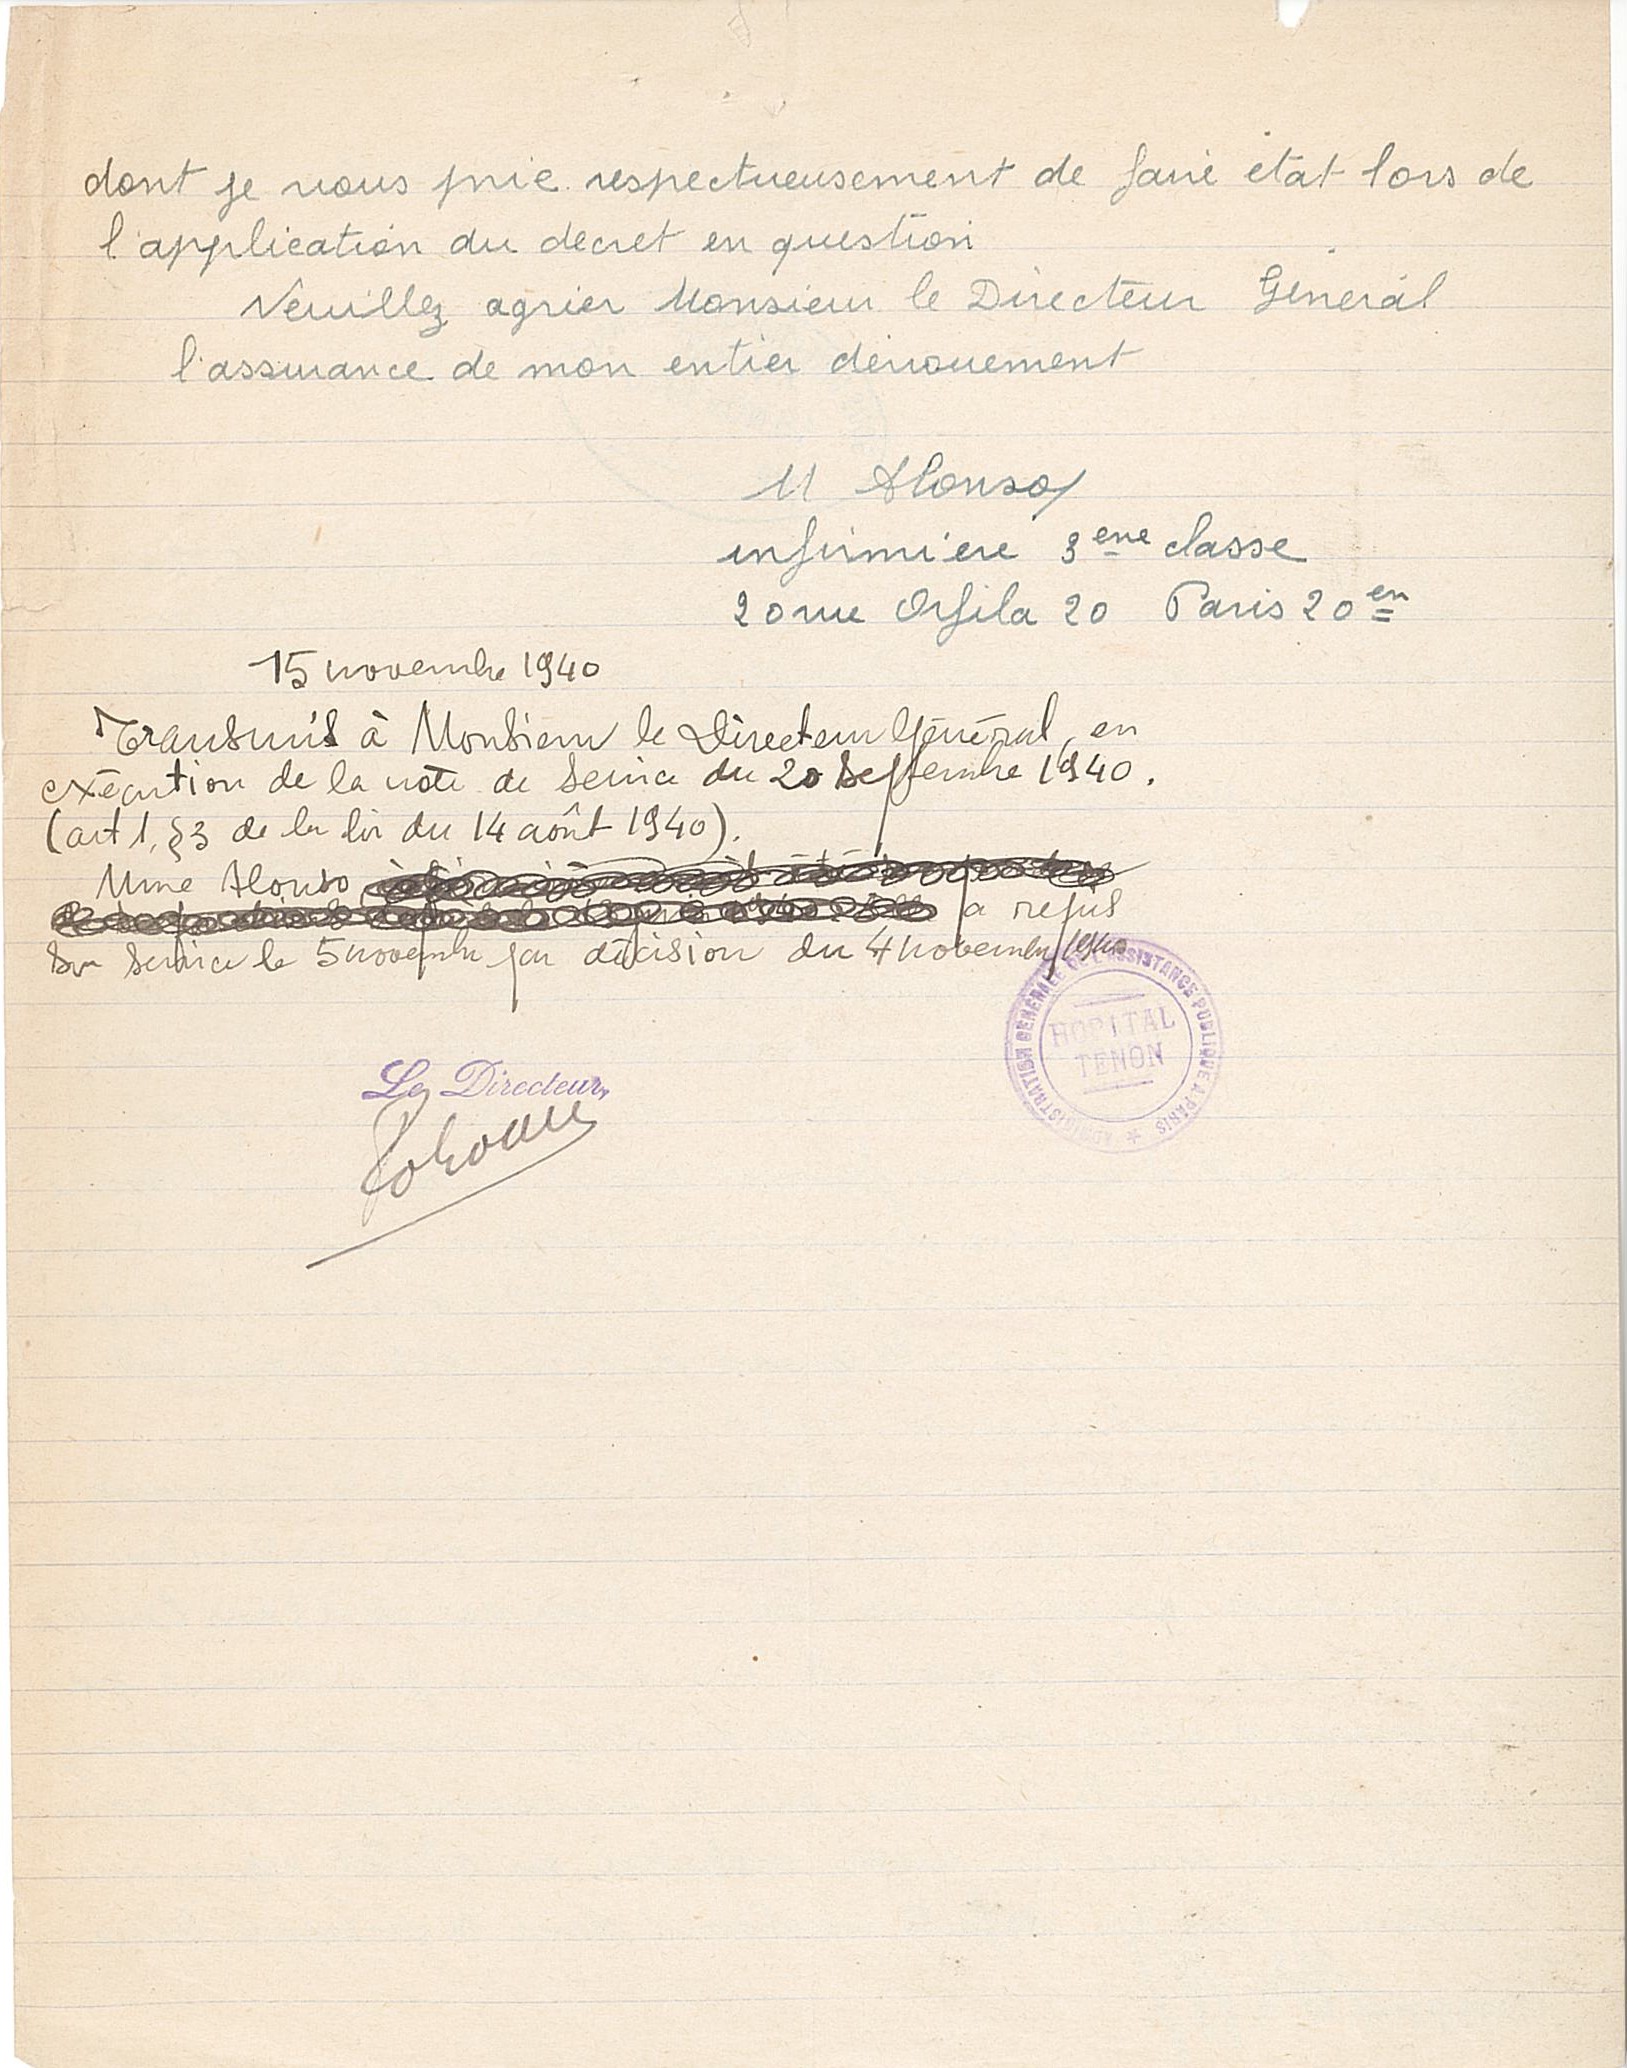 dont je vous prie respectueusement de faire état lors de
l'application du decret en question
Veuillez agréer Monsieur le Directeur Général
l'assurance de mon entier dévouement
M Alonso
infirmière 3ème classe
20 rue Orfila 20 Paris 20en
15 novembre 1940
Transmis à Monsieur le Directeur Général, en
exécution de la note de service du 20 septembre 1940.
(art 1, §3 de la loi du 14 août 1940).
Mme Alonso
a repris
son service le 5 novembre par décision du 4 novembre 1940
Le Directeur,
ADMINISTRATION GÉNÉRALE DE L'ASSISTANCE PUBLIQUE A PARIS
HOPITAL
TENON